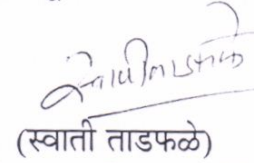 (स्वाती ताडफळे)